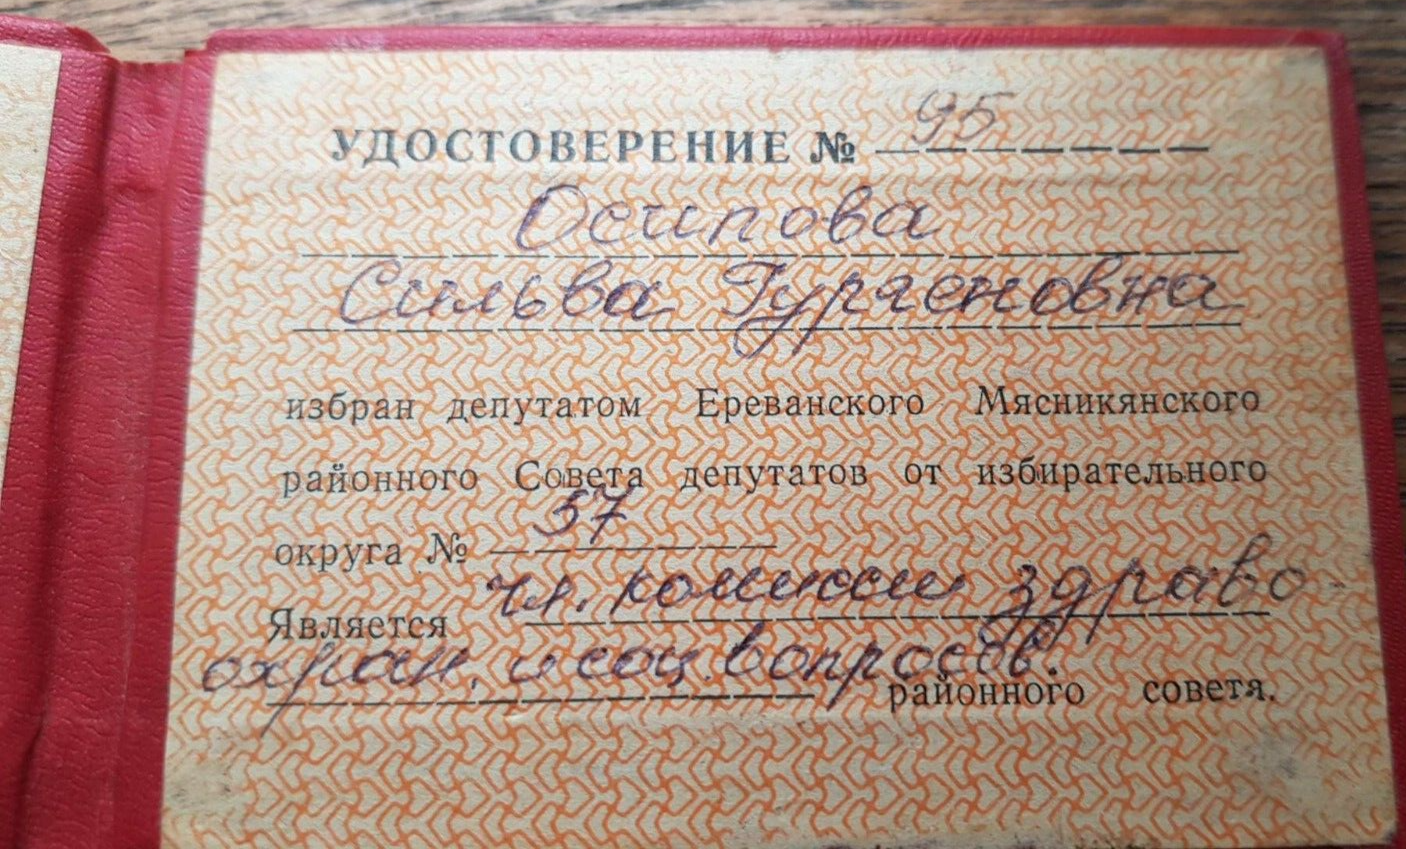 УДОСТОВЕРЕНИЕ № 95
Осипова
Сильва Гургеновна
избран депутатом Ереванского Мясникянского
районного Совета депутатов от избирательного
округа № 57
Является чл. комиссии здраво-
охран. и соц. вопросов.
районного советя.